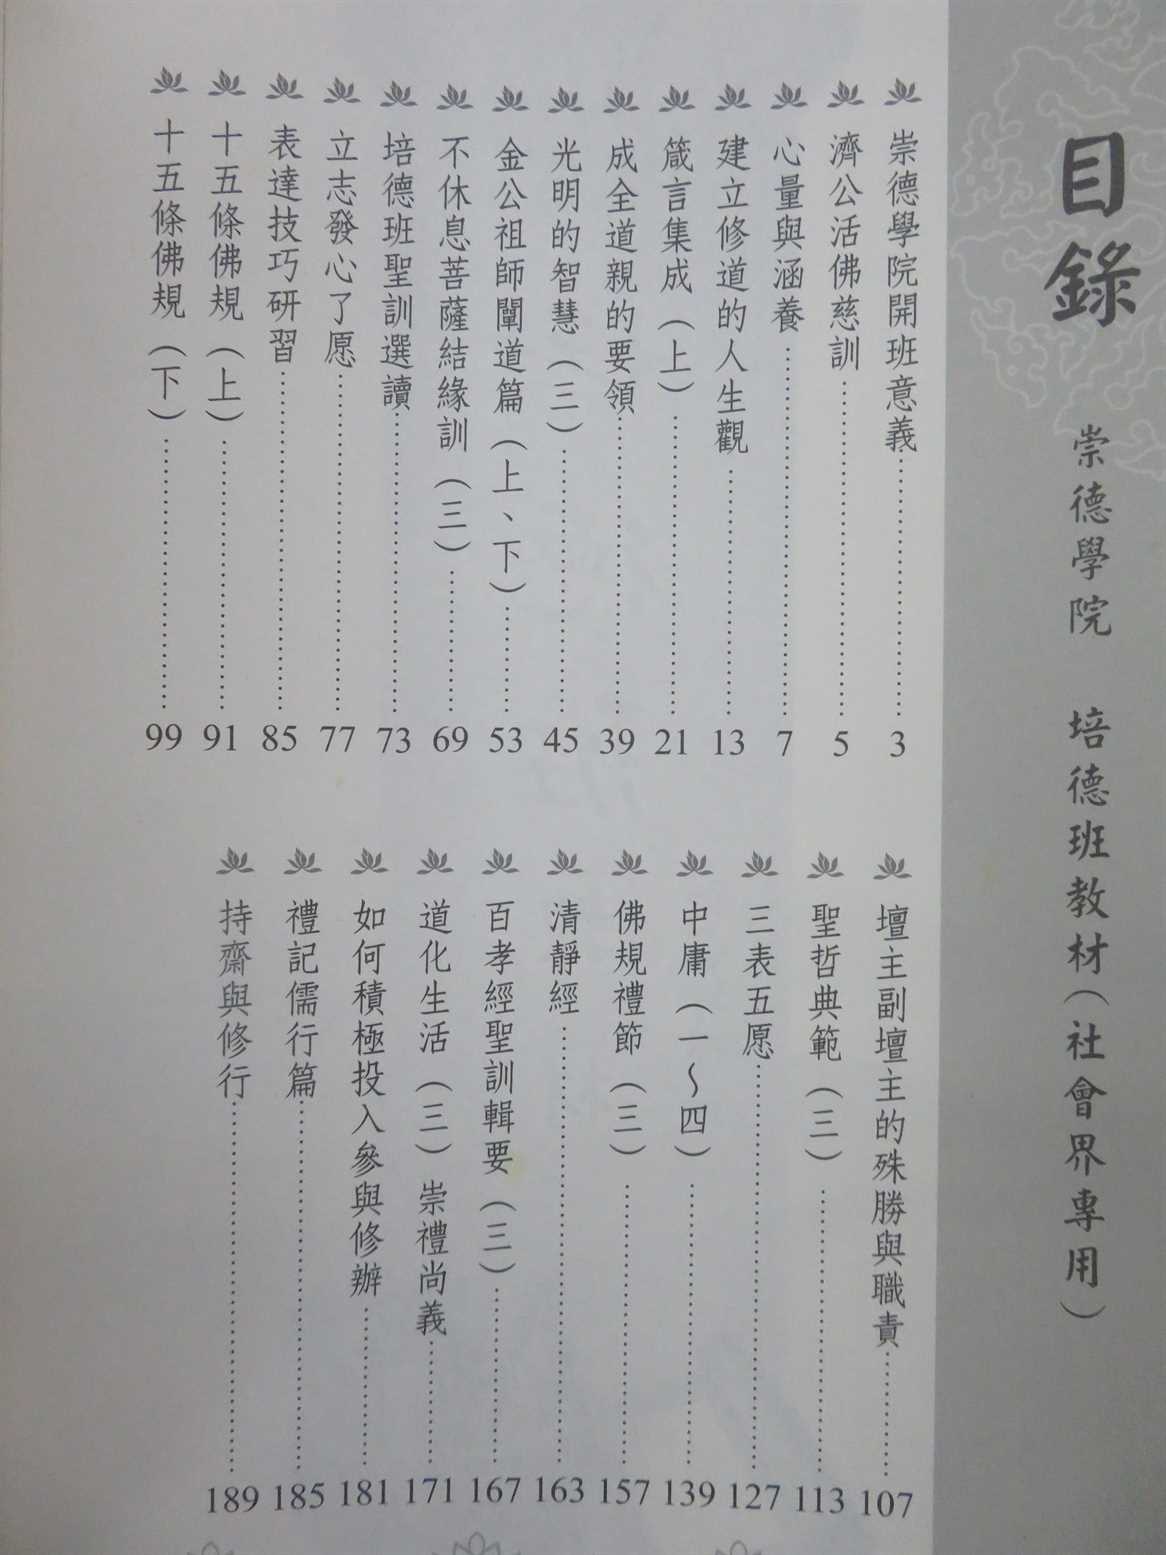 目錄
崇德學院　培德班教材（社會界專用）
崇德學院開班意義……3
濟公活佛慈訓……5
心量與涵養……7
建立修道的人生觀……13
箴言集成（上）……21
成全道親的要領……39
光明的智慧（三）……45
金公祖師闡道篇（上、下）……53
不休息菩薩結緣訓（三）……69
培德班聖訓選讀……73
立志發心了愿……77
表達技巧研習……85
十五條佛規（上）……91
十五條佛規（下）……99
壇主副壇主的殊勝與職責……107
聖哲典範（三）……113
三表五愿……127
中庸（一～四）……139
佛規禮節（三）……157
清靜經……163
百孝經聖訓輯要（三）……167
道化生活（三）崇禮尚義……171
如何積極投入參與修辦……181
禮記儒行篇……185
持齋與修行……189